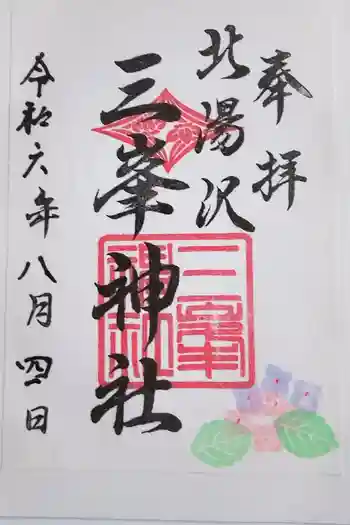 奉拝
北湯沢
三峯神社
三峯神社
令和六年八月四日